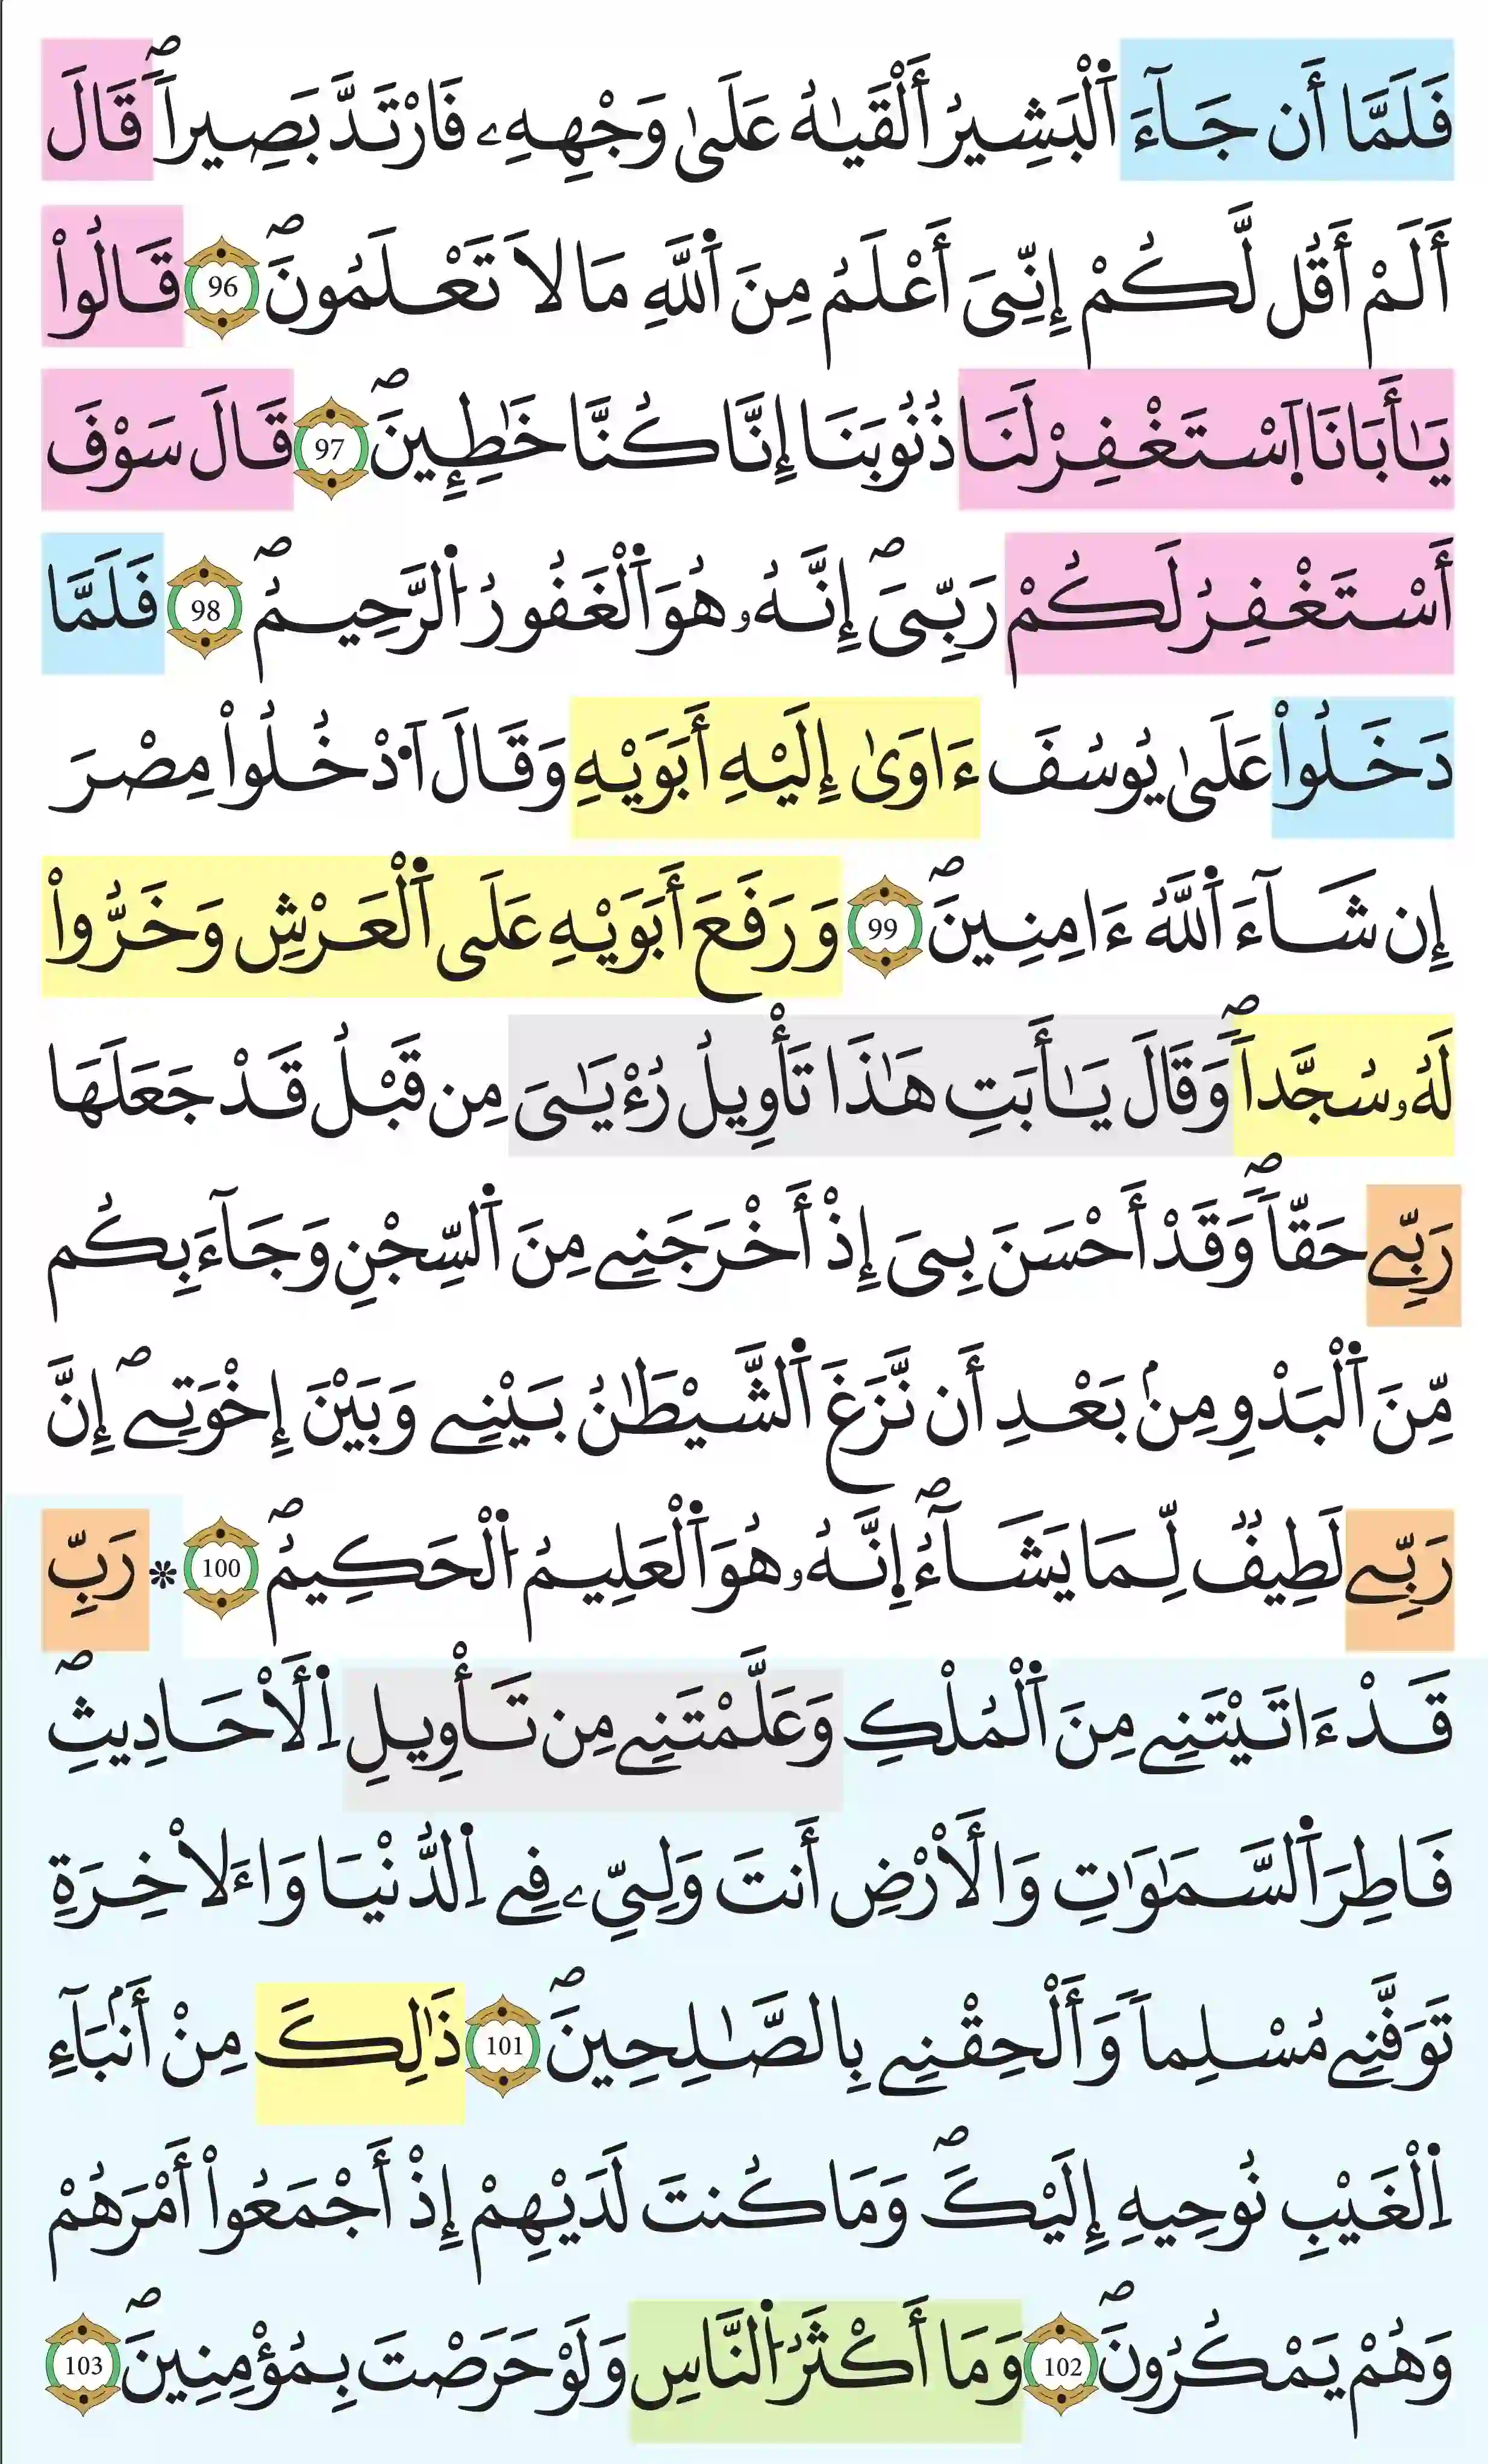 فَلَمَّا أَن جَآءَ اَ۬لْبَشِيرُ أَلْقَيٰهُ عَلَىٰ وَجْهِهِۦ فَارْتَدَّ بَصِيراٗۖ قَالَ
أَلَمْ أَقُل لَّكُمْ إِنِّيَ أَعْلَمُ مِنَ اَ۬للَّهِ مَا لَا تَعْلَمُونَۖ 96 قَالُواْ
يَٰأَبَانَا اَ۪سْتَغْفِرْ لَنَا ذُنُوبَنَا إِنَّا كُنَّا خَٰطِـِٕينَۖ 97 قَالَ سَوْفَ
أَسْتَغْفِرُ لَكُمْ رَبِّيَۖ إِنَّهُۥ هُوَ اَ۬لْغَفُورُ اُ۬لرَّحِيمُۖ 98 فَلَمَّا
دَخَلُواْ عَلَىٰ يُوسُفَ ءَاوَىٰ إِلَيْهِ أَبَوَيْهِ وَقَالَ اَ۟دْخُلُواْ مِصْرَ
إِن شَآءَ اَ۬للَّهُ ءَامِنِينَۖ 99 وَرَفَعَ أَبَوَيْهِ عَلَى اَ۬لْعَرْشِ وَخَرُّواْ
لَهُۥ سُجَّداٗۖ وَقَالَ يَٰأَبَتِ هَٰذَا تَأْوِيلُ رُءْيَٰيَ مِن قَبْلُ قَدْ جَعَلَهَا
رَبِّے حَقّاٗۖ وَقَدْ أَحْسَنَ بِيَ إِذْ أَخْرَجَنِے مِنَ اَ۬لسِّجْنِ وَجَآءَ بِكُم
مِّنَ اَ۬لْبَدْوِ مِنۢ بَعْدِ أَن نَّزَغَ اَ۬لشَّيْطَٰنُ بَيْنِے وَبَيْنَ إِخْوَتِےۖ إِنَّ
رَبِّے لَطِيفٞ لِّمَا يَشَآءُۖ اِنَّهُۥ هُوَ اَ۬لْعَلِيمُ اُ۬لْحَكِيمُۖ 100 * رَبِّ
قَدْ ءَاتَيْتَنِے مِنَ اَ۬لْمُلْكِ وَعَلَّمْتَنِے مِن تَأْوِيلِ اِ۬لْأَحَادِيثِۖ
فَاطِرَ اَ۬لسَّمَٰوَٰتِ وَالْأَرْضِ أَنتَ وَلِيِّۦ فِے اِ۬لدُّنْيَا وَاءَلَاخِرَةِ
تَوَفَّنِے مُسْلِماٗ وَأَلْحِقْنِے بِالصَّٰلِحِينَۖ 101 ذَٰلِكَ مِنْ أَنۢبَآءِ
اِ۬لْغَيْبِ نُوحِيهِ إِلَيْكَۖ وَمَا كُنتَ لَدَيْهِمْ إِذْ أَجْمَعُواْ أَمْرَهُمْ
وَهُمْ يَمْكُرُونَۖ 102 وَمَا أَكْثَرُ اُ۬لنَّاسِ وَلَوْ حَرَصْتَ بِمُؤْمِنِينَۖ 103